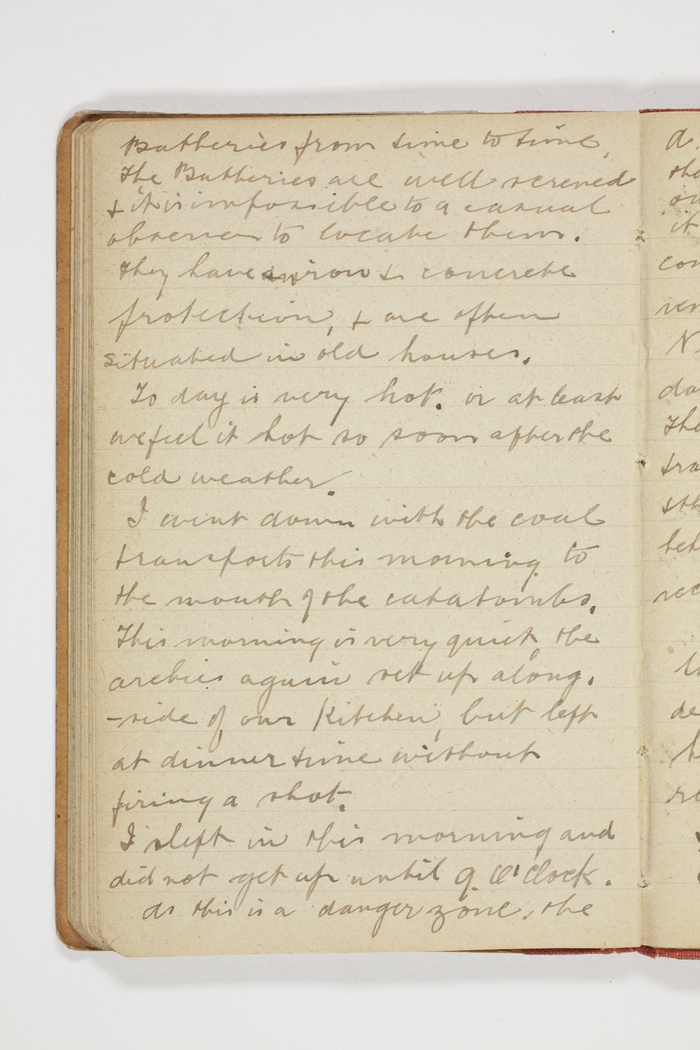 Batteries from time to time,
the Batteries are well screned
& it is impossible to a casual
observer to locate them.
they have an iron & concrete
protection, & are often
situated in old houses.
To day is very hot. or at least
we feel it hot so soon after the
cold weather.
I went down with the coal
transports this morning to
the mouth of the catatombs.
This morning is very quiet, the
archies again set up along.
-side of our Kitchen, but left
at dinner time without
firing a shot.
I slept in this morning and
did not get up until 9. O'Clock.
As this is a danger zone, the